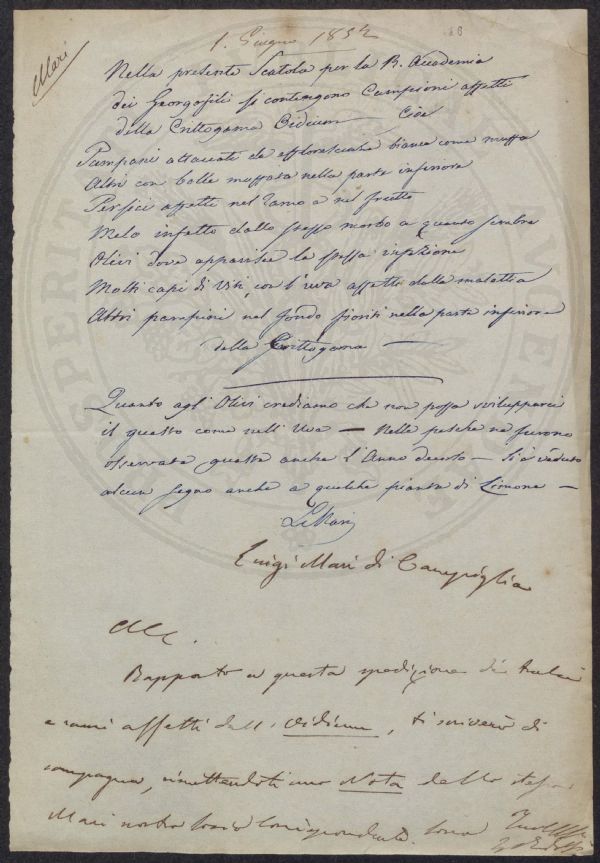 Mari
1. Giugno 1852
Nella presente Scatola per la R. Accademia
dei Georgofili si contengono Campioni affetti
della Crittogama Oidium Cioè
Pampani attaccati da efflorescenze bianca come muffa
Altri con bolle muffata nella parte inferiore
Persici affetti nel ramo e nel frutto
Melo infetto dallo stesso morbo a quanto sembra
Olivi dove apparisce la stessa infezione
Molti capi di Viti, con l'uva affetta dalla malattia
Altri pampini nel fondo fioriti nella parte inferiore
della Crittogama —
Quanto agl'Olivi crediamo che non possa svilupparci
il guasto come nell'Uva — Nelle pesche ne furono
osservate guaste anche l'Anno decorso — Si è veduto
alcun segno anche a qualche pianta di Limone —
L. Mari
Luigi Mari di Campiglia
Rapporto a questa spedizione di tralci
e rami affetti dall'oidium, ti scriverò di
campagna, rimettendoti una Nota dello stesso
Mari nostro Socio Corrispondente.